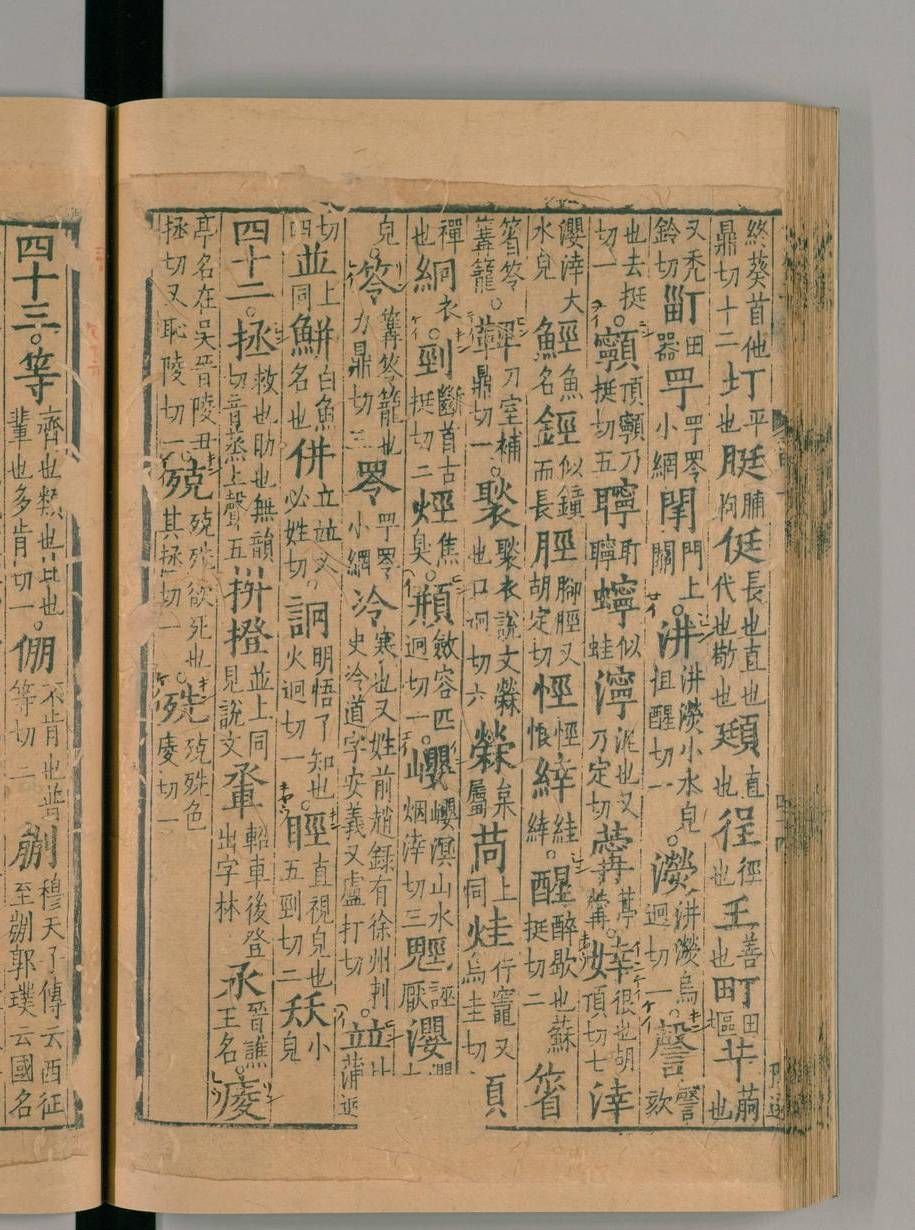 終葵首他鼎切十二圢平也脡脯朐侹長也直也代也敬也頲直也徎徑也𡈼善也町田區艼葋也
又禿鈴切甼田器䍏䍏罖小網門上關汫汫濙小水皃徂醒切一濙汫濙烏迥切一謦謦欬
也去挺切一頂乃挺切五聹耵聹似蛙濘泥也又乃定切葶婞很也胡頂切七涬
瀴涬大水皃魚名鋞似鐘而長脛腳脛又胡定切悢緈絓緈醒醉歇也蘇挺切二箵
箵笭篝籠鞞刀室補鼎切一褧褧衣說文檾也口迥切六檾枲屬苘上同烓行竈又烏圭切頃
襌衣也絅剄斷首古挺切二烴焦臭頩斂容匹迥切一巊巊溟山水烟涬切三瀴
皃笭篝笭籠也力鼎切三罖䍏罖小網冷寒也又姓前趙錄有徐州刺史冷道字安義又盧打切竝比蒲迥
切四並上同鮩白魚名也併立竝又必姓切詗明悟了知也火迥切一直視皃也五剄切二小皃
四十二拯救也助也無韻切音蒸上聲五抍撜並上同見說文軺車後登出字林氶晉譙王名庱
亭名在吳晉陵丑拯切又恥陵切一殑殑殊欲死也其拯切一殑殊色庱切一
四十三等齊也類也比也輩也多肯切一倗不肯也普等切二𠜱穆天子傳云西征至𠜱郭璞云國名